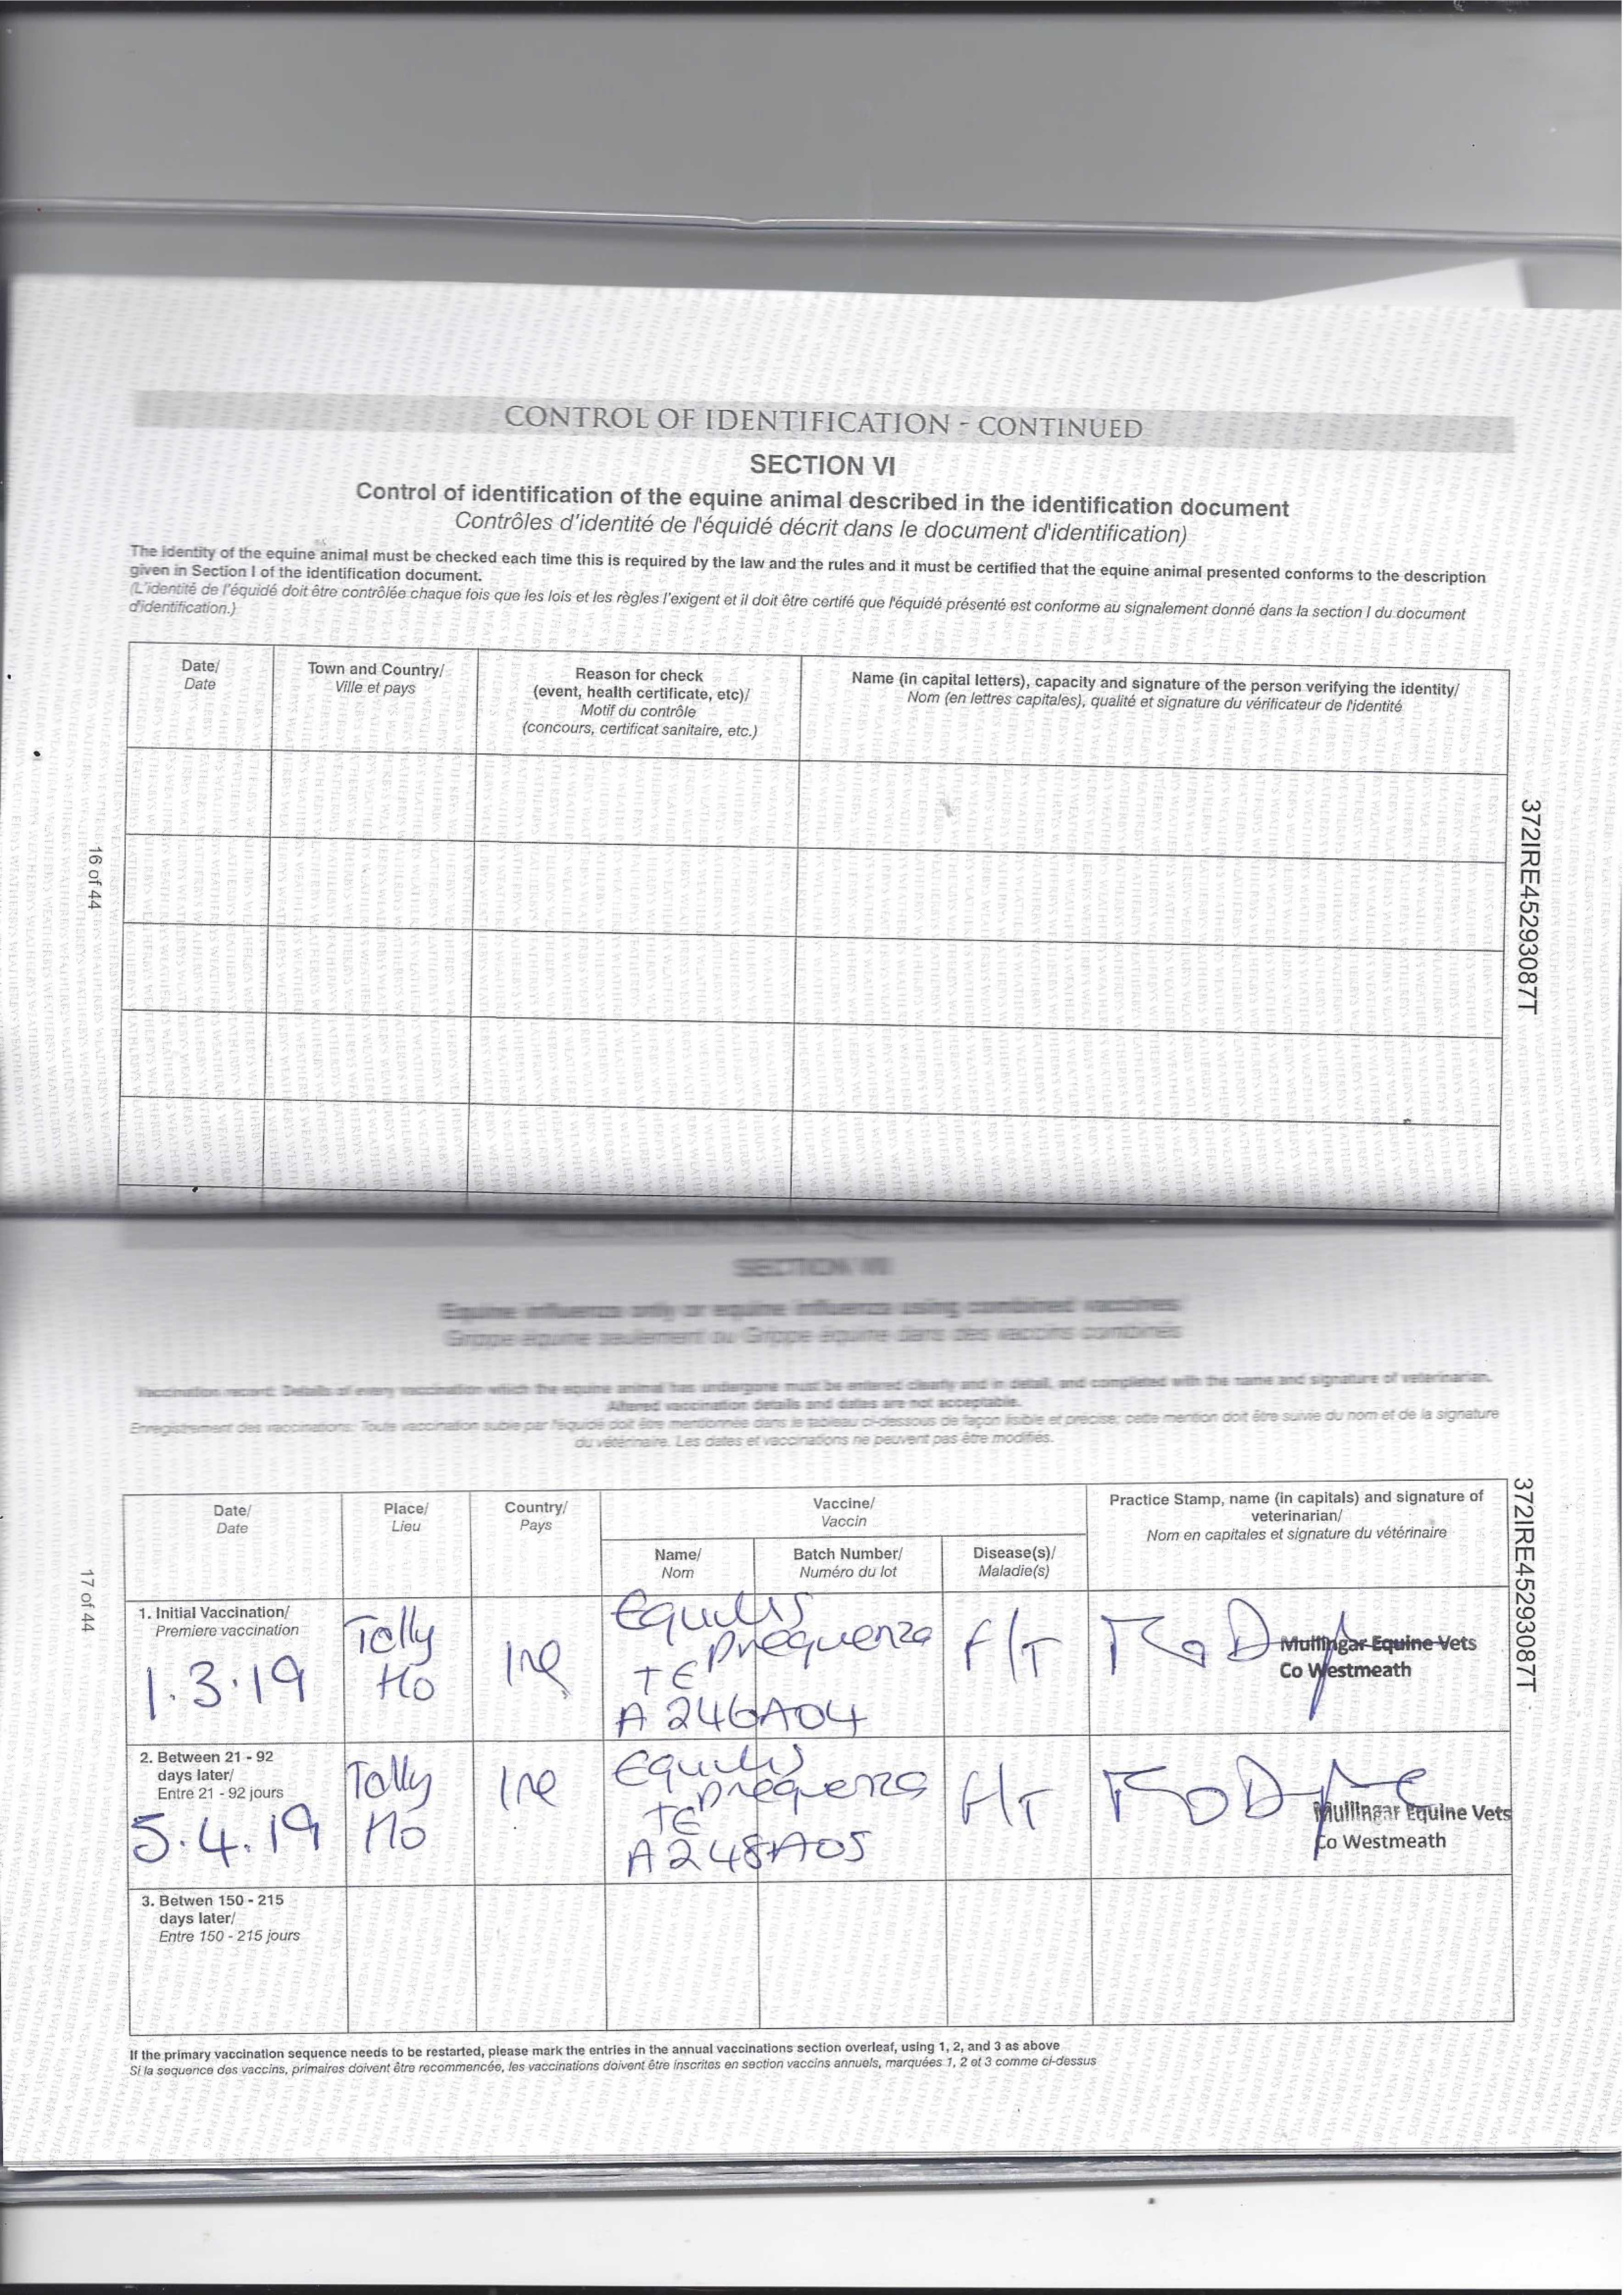 CONTROL OF IDENTIFICATION - CONTINUED
SECTION VI
Control of identification of the equine animal described in the identification document
Contrôles d'identité de l'équidé décrit dans le document d'identification)
The identity of the equine animal must be checked each time this is required by the law and the rules and it must be certified that the equine animal presented conforms to the description
given in Section I of the identification document.
(L'identité de l'équidé doit être contrôlée chaque fois que les lois et les règles l'exigent et il doit être certifé que l'équidé présenté est conforme au signalement donné dans la section I du document
d'identification.)
Date/
Date
Town and Country/
Ville et pays
Reason for check
(event, health certificate, etc)/
Motif du contrôle
(concours, certificat sanitaire, etc.)
Name (in capital letters), capacity and signature of the person verifying the identity/
Nom (en lettres capitales), qualité et signature du vérificateur de l'identité
16 of 44
372IRE45293087T
SECTION VII
Equine influenza only or equine influenza using combined vaccines
Grippe équine seulement ou Grippe équine dans des vaccins combinés
Vaccination record: Details of every vaccination which the equine animal has undergone must be entered clearly and in detail, and completed with the name and signature of veterinarian.
Altered vaccination details and dates are not acceptable.
Enregistrement des vaccinations: Toute vaccination subie par l'équidé doit être mentionnée dans le tableau ci-dessous de façon lisible et précise; cette mention doit être suivie du nom et de la signature
du vétérinaire. Les dates et vaccinations ne peuvent pas être modifiés.
Date/
Date
Place/
Lieu
Country/
Pays
Vaccine/
Vaccin
Name/
Nom
Batch Number/
Numéro du lot
Disease(s)/
Maladie(s)
Practice Stamp, name (in capitals) and signature of
veterinarian/
Nom en capitales et signature du vétérinaire
17 of 44
372IRE45293087T
1. Initial Vaccination/
Premiere vaccination
1.3.19
Tally
Ho
Ire
Equilis
Prequenza
TE
A246A04
F/T
Mullingar Equine Vets
Co Westmeath
2. Between 21 - 92
days later/
Entre 21 - 92 jours
5.4.19
Tally
Ho
Ire
Equilis
Prequenza
TE
A248A05
F/T
Mullingar Equine Vets
Co Westmeath
3. Betwen 150 - 215
days later/
Entre 150 - 215 jours
If the primary vaccination sequence needs to be restarted, please mark the entries in the annual vaccinations section overleaf, using 1, 2, and 3 as above
Si la sequence des vaccins, primaires doivent être recommencée, les vaccinations doivent être inscrites en section vaccins annuels, marquées 1, 2 et 3 comme ci-dessus